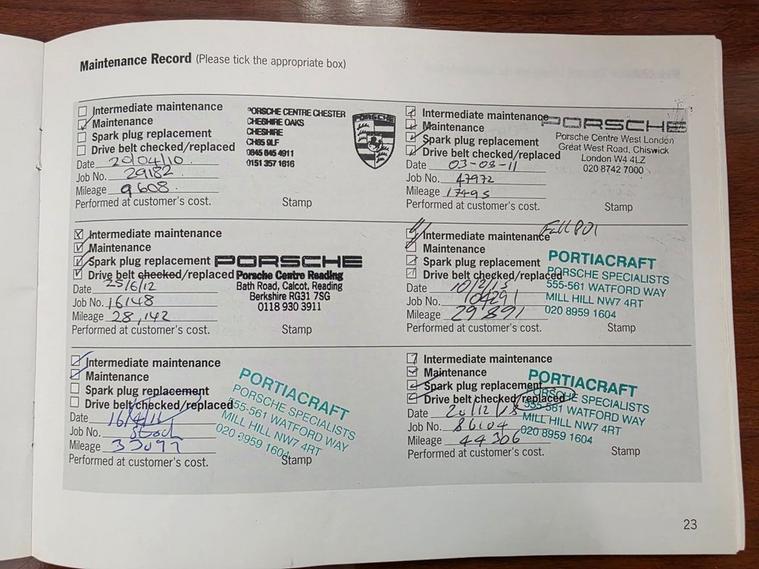 Maintenance Record (Please tick the appropriate box)
Intermediate maintenance
Maintenance
Spark plug replacement
Drive belt checked/replaced
Date 20/04/10.
Job No. 29182.
Mileage 9608.
Performed at customer's cost.
PORSCHE CENTRE CHESTER
CHESHIRE OAKS
CHESHIRE
CH65 9LF
0845 845 4911
0151 357 1616
PORSCHE
Stamp
Intermediate maintenance
Maintenance
Spark plug replacement
Drive belt checked/replaced
Date 03-08-11
Job No. 47972
Mileage 17495
Performed at customer's cost.
PORSCHE
Porsche Centre West London
Great West Road, Chiswick
London W4 4LZ
020 8742 7000
Stamp
Intermediate maintenance
Maintenance
Spark plug replacement
Drive belt checked/replaced
Date 25/6/12
Job No. 16148
Mileage 28,142
Performed at customer's cost.
PORSCHE
Porsche Centre Reading
Bath Road, Calcot, Reading
Berkshire RG31 7SG
0118 930 3911
Stamp
Intermediate maintenance
Maintenance
Spark plug replacement
Drive belt checked/replaced
Date 10/2/15
Job No. 104291
Mileage 29891
Performed at customer's cost.
PORTIACRAFT
PORSCHE SPECIALISTS
555-561 WATFORD WAY
MILL HILL NW7 4RT
020 8959 1604
Stamp
Intermediate maintenance
Maintenance
Spark plug replacement
Drive belt checked/replaced
Date 16/4/16
Job No.
Mileage 35097
Performed at customer's cost.
PORTIACRAFT
PORSCHE SPECIALISTS
555-561 WATFORD WAY
MILL HILL NW7 4RT
020 8959 1604
Stamp
Intermediate maintenance
Maintenance
Spark plug replacement
Drive belt checked/replaced
Date 20/12/18
Job No. 86104
Mileage 44306
Performed at customer's cost.
PORTIACRAFT
PORSCHE SPECIALISTS
555-561 WATFORD WAY
MILL HILL NW7 4RT
020 8959 1604
Stamp
23